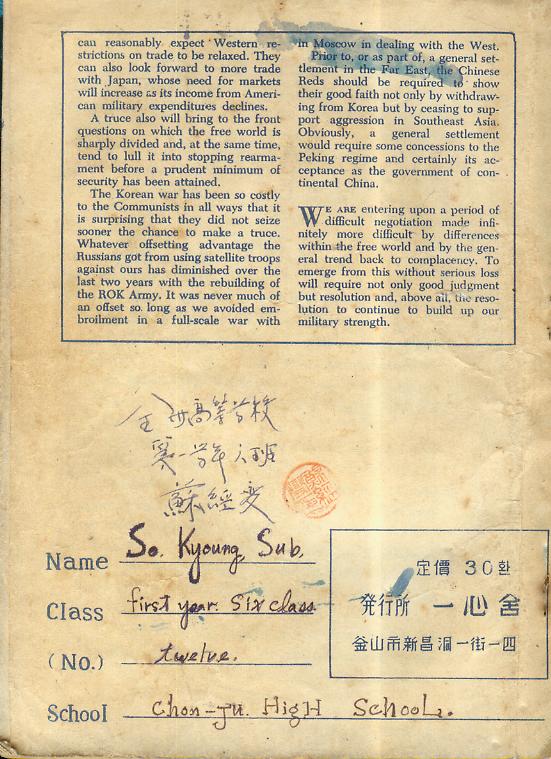 can reasonably expect Western re-
strictions on trade to be relaxed. They
can also look forward to more trade
with Japan, whose need for markets
will increase as its income from Ameri-
can military expenditures declines.
A truce also will bring to the front
questions on which the free world is
sharply divided and, at the same time,
tend to lull it into stopping rearma-
ment before a prudent minimum of
security has been attained.
The Korean war has been so costly
to the Communists in all ways that it
is surprising that they did not seize
sooner the chance to make a truce.
Whatever offsetting advantage the
Russians got from using satellite troops
against ours has diminished over the
last two years with the rebuilding of
the ROK Army. It was never much of
an offset so long as we avoided em-
broilment in a full-scale war with
in Moscow in dealing with the West.
Prior to, or as part of, a general set-
tlement in the Far East, the Chinese
Reds should be required to show
their good faith not only by withdraw-
ing from Korea but by ceasing to sup-
port aggression in Southeast Asia.
Obviously, a general settlement
would require some concessions to the
Peking regime and certainly its ac-
ceptance as the government of con-
tinental China.
WE ARE entering upon a period of
difficult negotiation made infi-
nitely more difficult by differences
within the free world and by the gen-
eral trend back to complacency. To
emerge from this without serious loss
will require not only good judgment
but resolution and, above all, the reso-
lution to continue to build up our
military strength.
全州高等学校
第一学年 六班
蘇經燮
Name So. Kyoung Sub.
Class first year. Six class
(No.) twelve.
School Chon-ju. HigH School.
定價 30환
発行所 一心舎
釜山市新昌洞一街一四